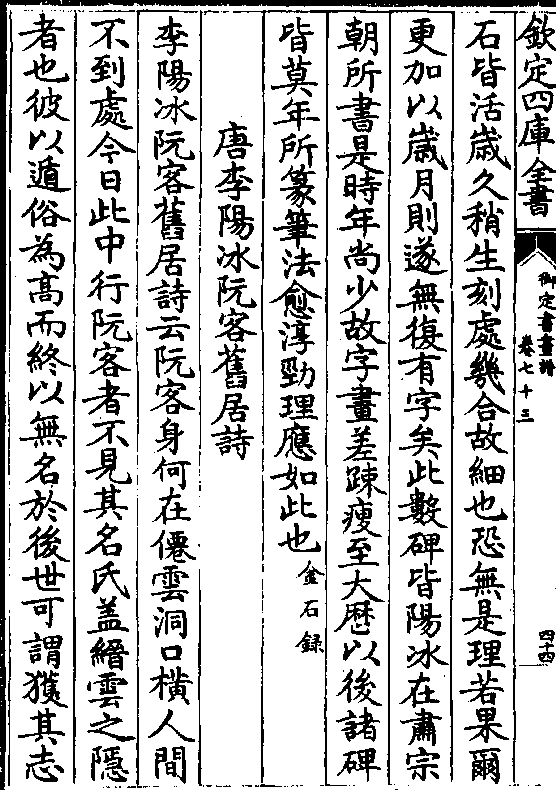 欽定四庫全書
御定書畫譜
卷七十三
四十四
石皆活歲久稍生刻處幾合故細也恐無是理若果爾
更加以歲月則遂無復有字矣此數碑皆陽冰在肅宗
朝所書是時年尚少故字畫差踈瘦至大歴以後諸碑
皆莫年所篆筆法愈淳勁理應如此也金石録
唐李陽冰阮客舊居詩
李陽冰阮客舊居詩云阮客身何在僊雲洞口橫人間
不到處今日此中行阮客者不見其名氏盖縉雲之隱
者也彼以遁俗為髙而終以無名於後世可謂獲其志